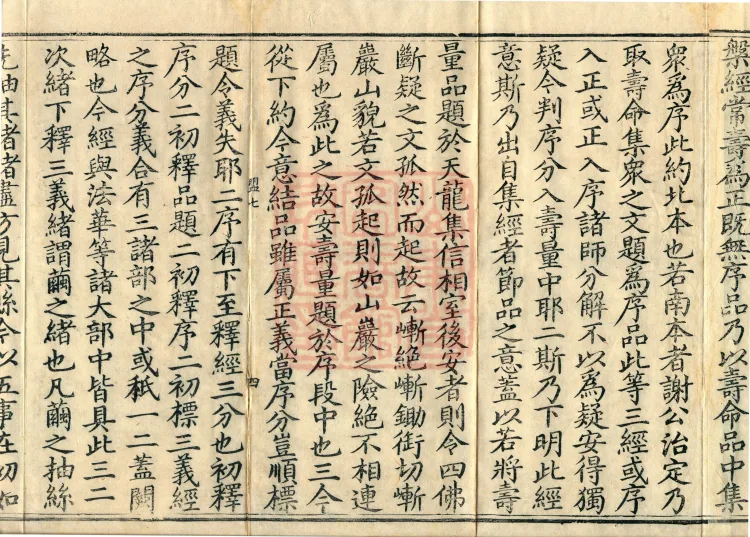 槃經常壽爲正既無序品乃以壽命品中集
衆爲序此約北本也若南本者謝公治定乃
取壽命集衆之文題爲序品此等三經或序
入正或正入序諸師分解不以爲疑安得獨
疑今判序分入壽量中耶二斯乃下明此經
意斯乃出自集經者節品之意蓋以若將壽
量品題於天龍集信相室後安者則令四佛
斷疑之文孤然而起故云嶃絕嶃鋤銜切嶃
巖山貌若文孤起則如山巖之險絕不相連
屬也爲此之故安壽量題於序段中也三今
從下約今意結品雖屬正義當序分豈順標
盟七
四
題令義失耶二序有下至釋經三分也初釋
序分二初釋品題二初釋序二初標三義經
之序分義合有三諸部之中或秖一二蓋闕
略也今經與法華等諸大部中皆具此三二
次緒下釋三義緒謂繭之緒也凡繭之抽絲
先抽其緒緒盡方見其絲今以五事在初如